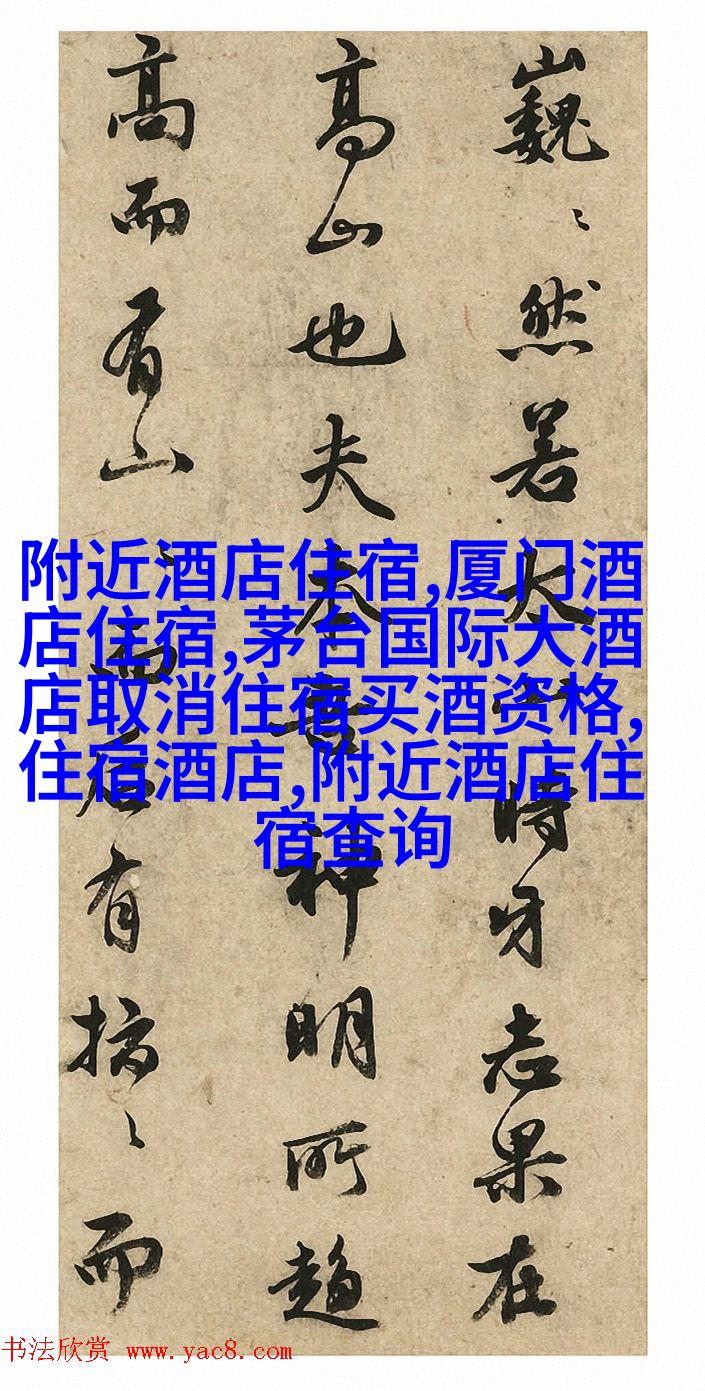 巍〻然若大時牙志果在
高山也夫神明所趨
高而有山而有〻而
附近酒店住宿,厦门酒
店住宿,茅台国际大酒
店取消住宿买酒资格,
住宿酒店,附近酒店住
宿查询
书法欣赏 www.yac8.com